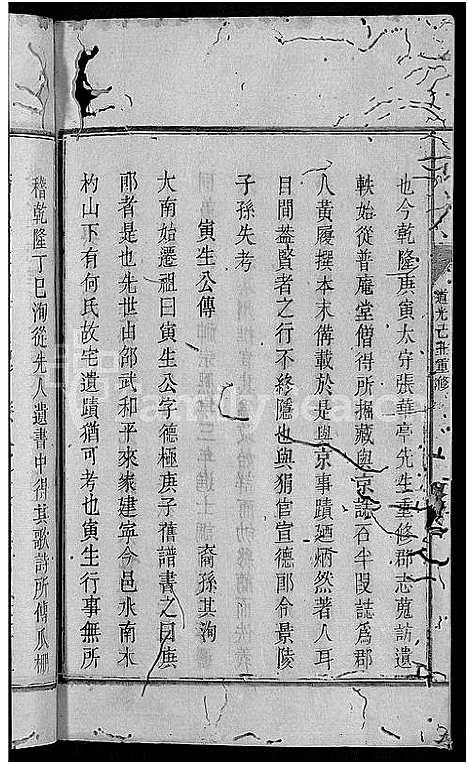 道光己丑重修
也今乾隆庚寅太守張華亭先生重修郡志蒐訪遺
軼始從普庵堂僧得所搨藏與京誌石半段誌為郡
人黃履撰本末備載於是與京事蹟廼炳然著人耳
目間葢賢者之行不終隱也與狷官宣德郎令景陵
子孫失考
寅生公傳
裔孫其洵
大南始遷祖曰寅生公字德極庚子舊譜書之曰庚
郎者是也先世由邵武和平來家建寧今邑水南木
杓山下有何氏故宅遺蹟猶可考也寅生行事無所
稽乾隆丁巳洵從先人遺書中得其歌詩所傳瓜棚
familysearch